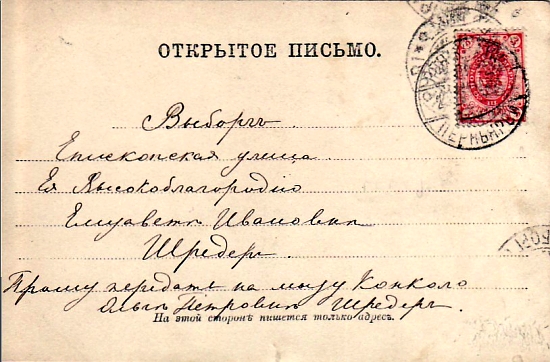 ОТКРЫТОЕ ПИСЬМО.
Выборгъ
Епископская улица
Ея Высокоблагородію
Елизаветѣ Ивановнѣ
Шредеръ.
Прошу передать на мызу Конколо
Ольгѣ Петровнѣ Шредеръ.
На этой сторонѣ пишется только адресъ.